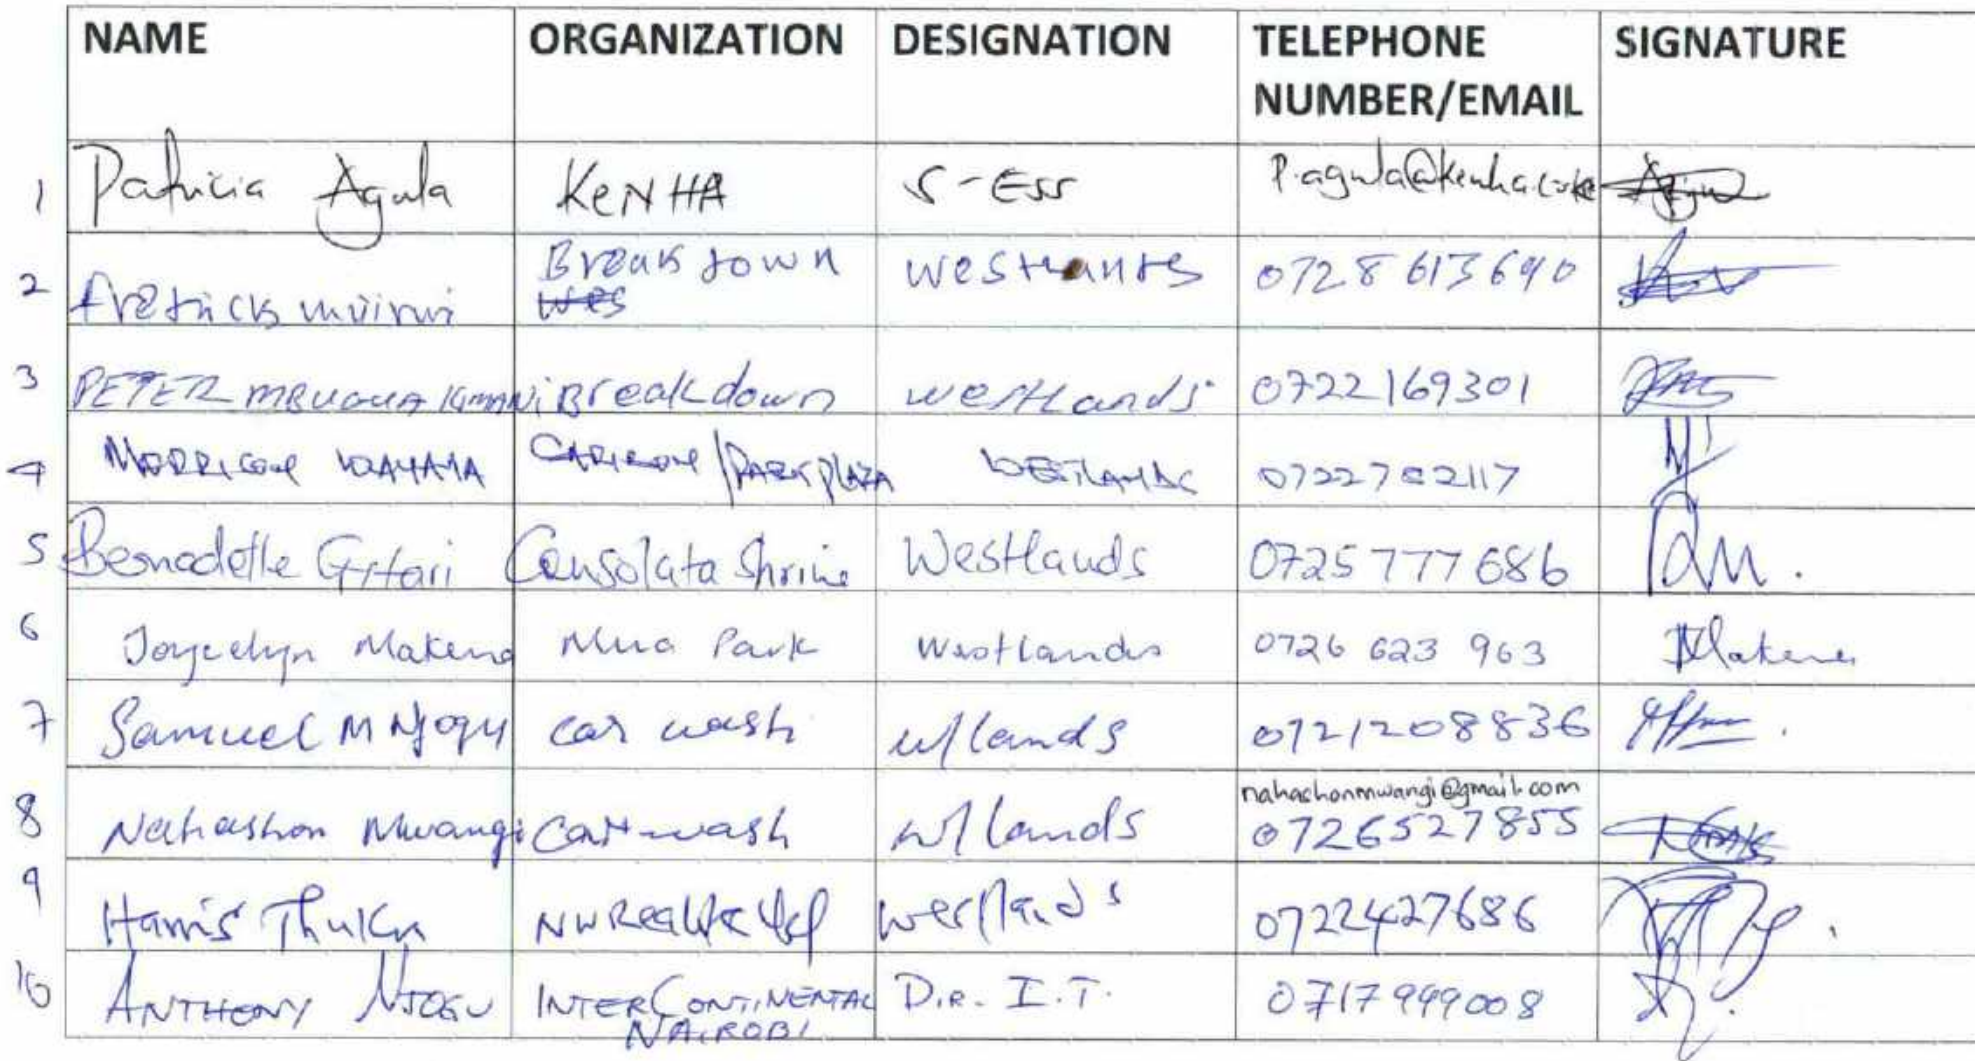 NAME ORGANIZATION DESIGNATION TELEPHONE NUMBER/EMAIL SIGNATURE
1 Patricia Agula KeNHA S-ESS P.agula@kenha.co.ke
2 Fredrick muirui Breakdown westlands 0728613690
3 PETER MBUGUA KIMANI Breakdown westlands 0722169301
4 MORRISON WAHAMA PARKPLAZA WESTLANDS 0722782117
5 Bernadette Gitari Consolata Shrine Westlands 0725777686
6 Joycelyn Makena Mua Park Westlands 0726 623 963 Makena
7 Samuel M Njogu car wash w/lands 0721208836
8 Nahashon Mwangi Car-wash w/lands nahashonmwangi@gmail.com 0726527855
9 Harris Thuku NW Realite Westlands 0722427686
10 ANTHONY NJOGU INTERCONTINENTAL NAIROBI Dir. I.T. 0717999008